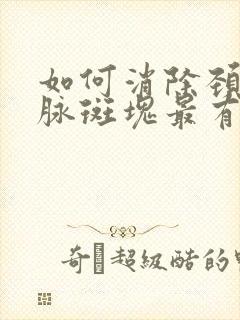 如何消除颈
脉斑塊最有
奇 超級酷的